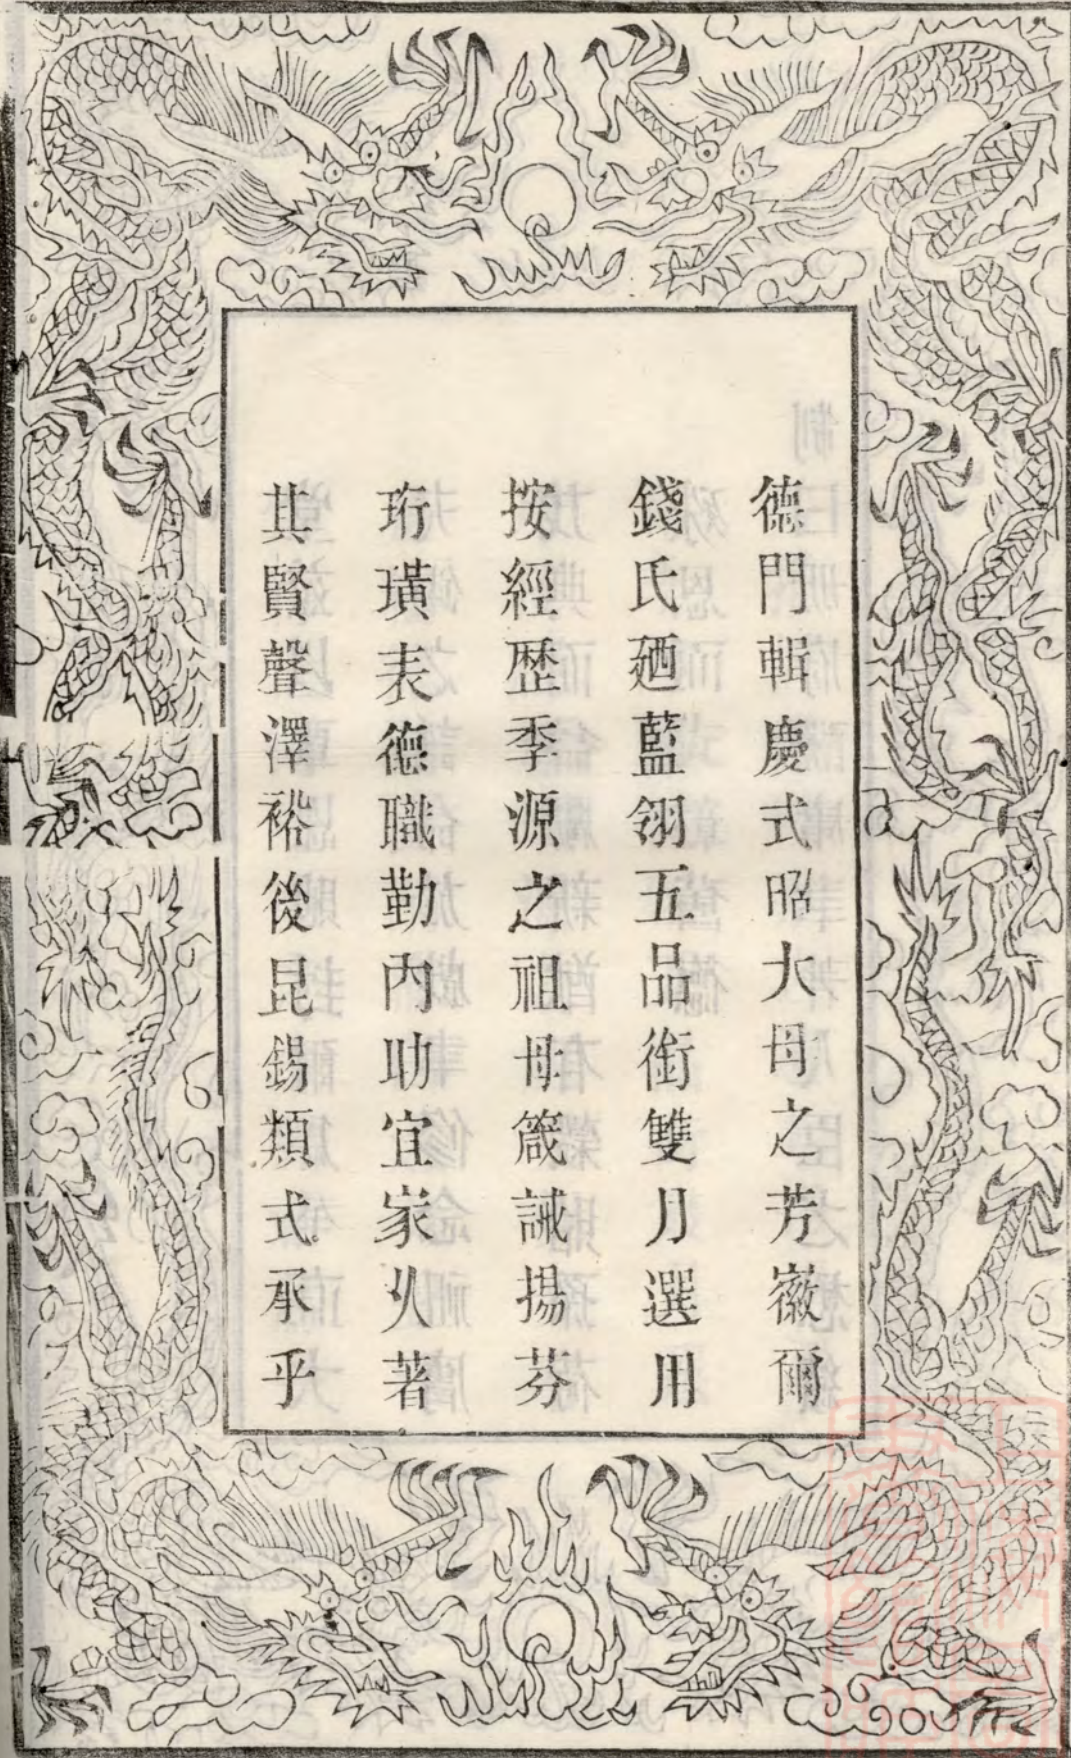 德門輯慶式昭大母之芳徽爾
錢氏廼藍翎五品銜雙月選用
按經歷季源之祖母箴誡揚芬
珩璜表德職勤內助宜家久著
其賢聲澤裕後昆錫類式承乎